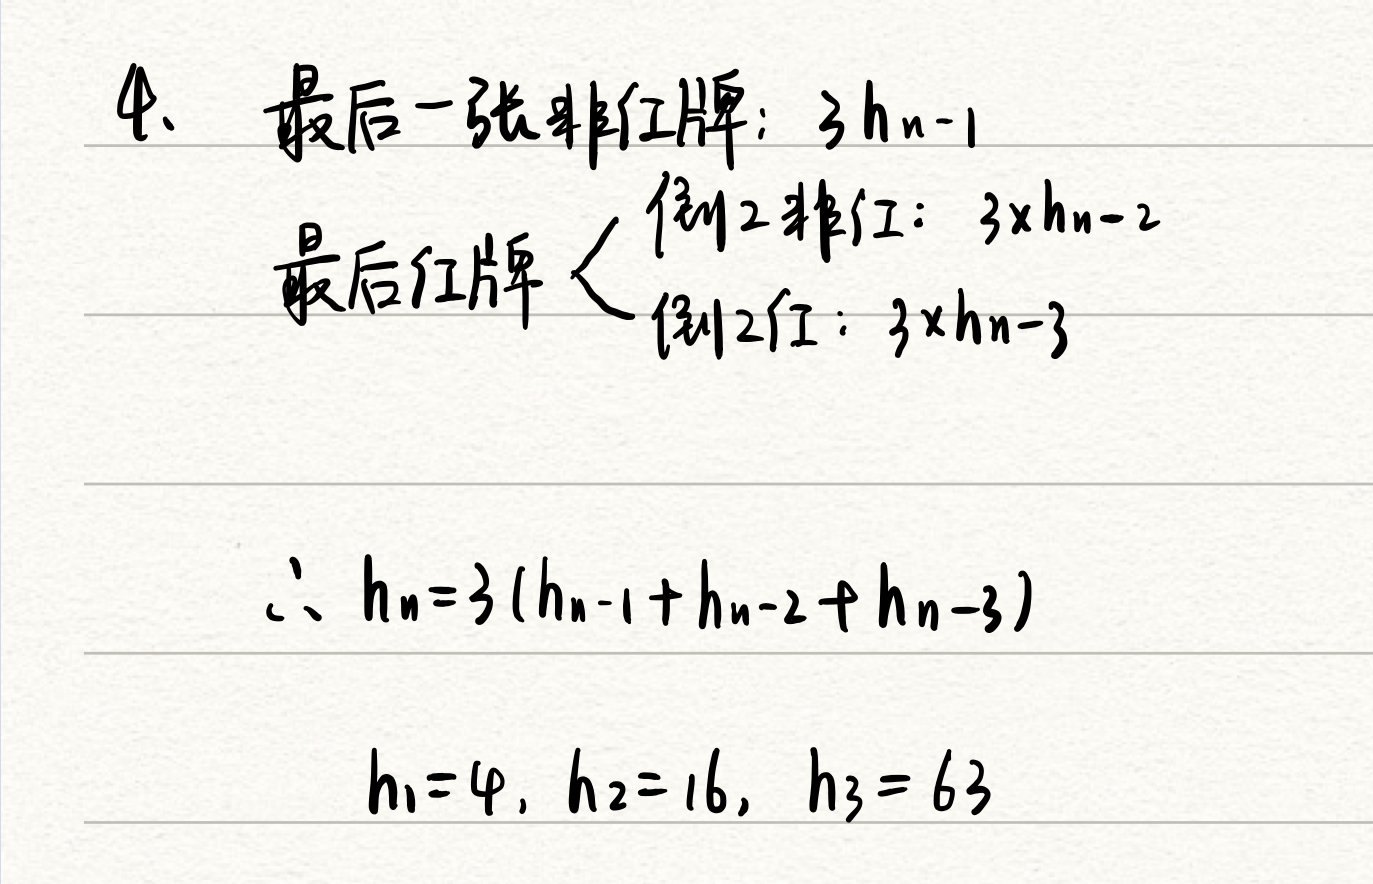 4、 最后一张非红牌: 3hn-1
倒2非红: 3×hn-2
最后红牌 <
倒2红: 3×hn-3
∴ hn=3(hn-1+hn-2+hn-3)
h1=4, h2=16, h3=63